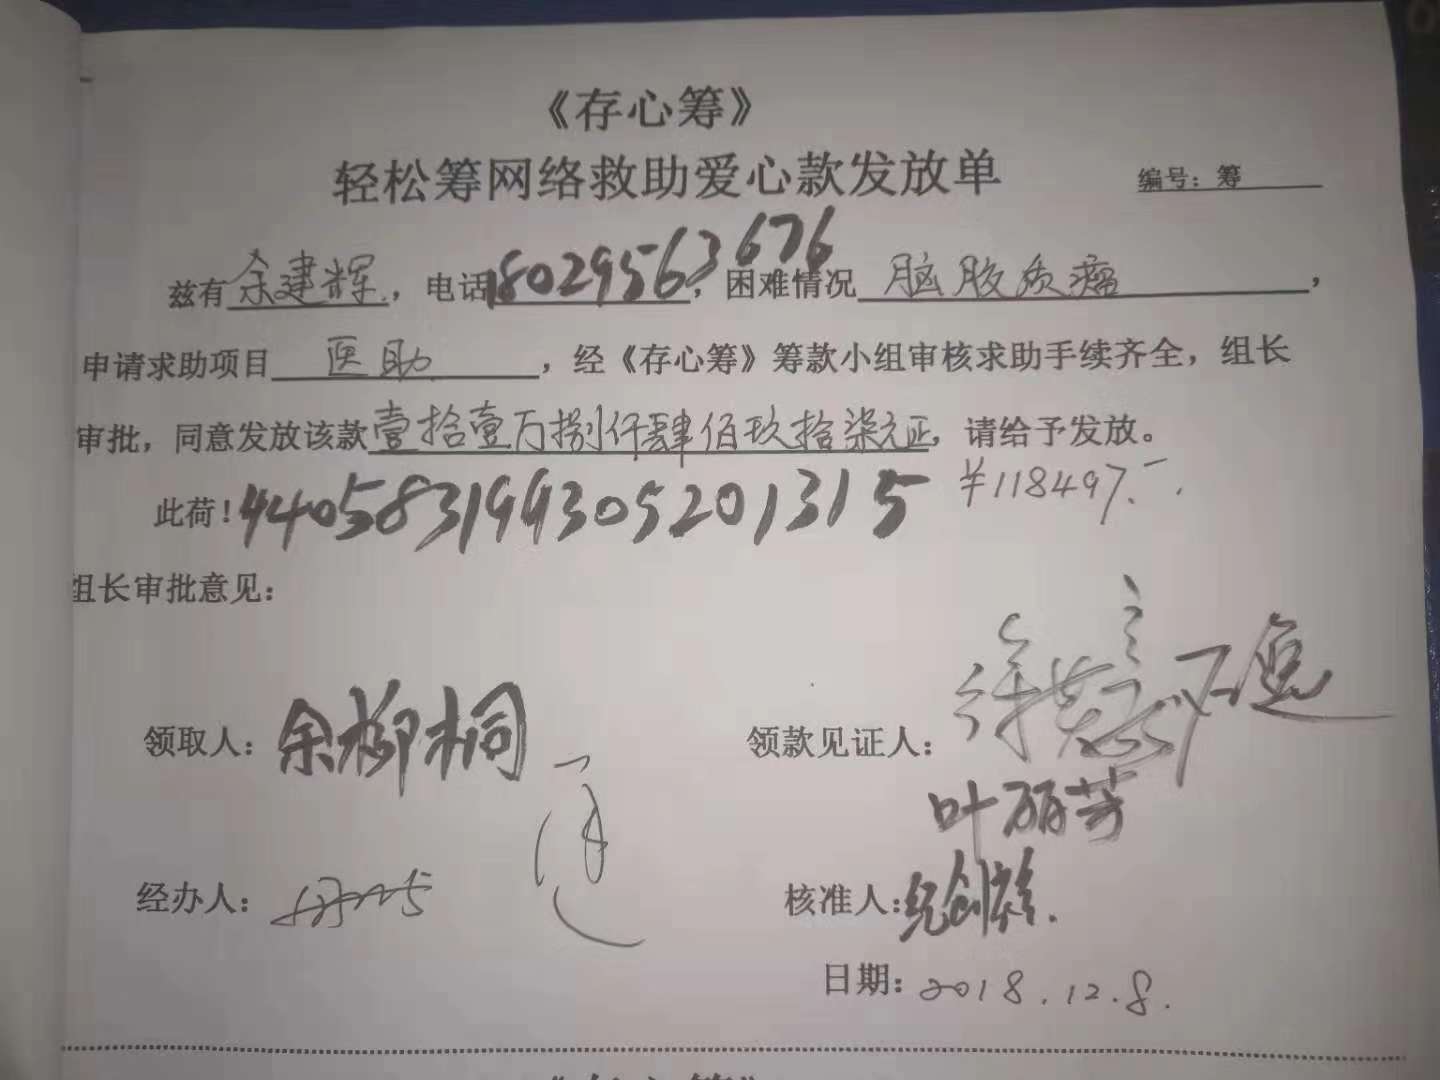 《存心筹》
轻松筹网络救助爱心款发放单
编号：筹
兹有余建辉，电话18029563676，困难情况脑胶质瘤，
申请求助项目医助，经《存心筹》筹款小组审核求助手续齐全，组长
审批，同意发放该款壹拾壹万捌仟肆佰玖拾柒元正，请给予发放。
¥118497.-
此荷！440583199305201315
组长审批意见：
领取人：余柳桐
领款见证人：
叶丽芳
经办人：
核准人：纪创雄
日期：2018.12.8.